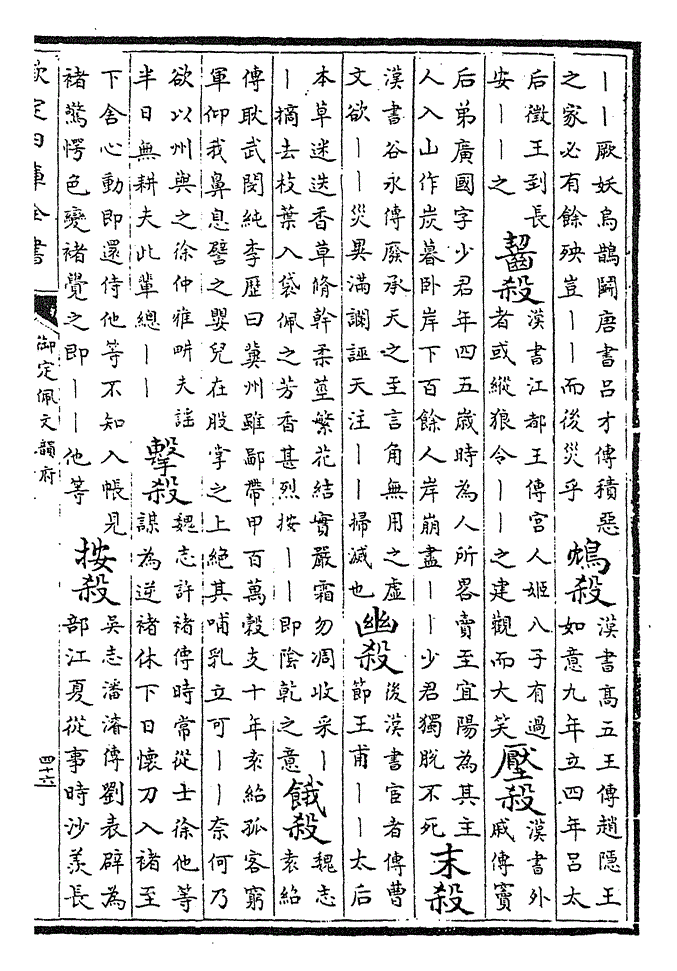 ｜｜厥妖烏鵲鬭唐書呂才傳積惡
之家必有餘殃豈｜｜而後災乎
鴆殺
漢書髙五王傳趙隱王
如意九年立四年呂太
后徵王到長
安｜｜之
齧殺
漢書江都王傳宮人姬八子有過
者或縱狼令｜｜之建觀而大笑
壓殺
漢書外
戚傳竇
后弟廣國字少君年四五歲時為人所畧賣至宜陽為其主
人入山作炭暮卧岸下百餘人岸崩盡｜｜少君獨脫不死
末殺
漢書谷永傳廢承天之至言角無用之虛
文欲｜｜災異滿讕誣天注｜｜掃滅也
幽殺
後漢書宦者傳曹
節王甫｜｜太后
本草迷迭香草脩幹柔莖繁花結實嚴霜勿凋收采｜
｜摘去枝葉入袋佩之芳香甚烈按｜｜即陰乾之意
餓殺
魏志
袁紹
傳耿武閔純李歷曰冀州雖鄙帶甲百萬穀支十年袁紹孤客窮
軍仰我鼻息譬之嬰兒在股掌之上絕其哺乳立可｜｜奈何乃
欲以州與之徐仲雅畊夫謡
半日無耕夫此輩總｜｜
擊殺
魏志許褚傳時常從士徐他等
謀為逆褚休下日懷刀入褚至
下舍心動即還侍他等不知入帳見
褚驚愕色變褚覺之即｜｜他等
按殺
吳志潘濬傳劉表辟為
部江夏從事時沙羨長
欽定四庫全書
御定佩文韻府
四十六